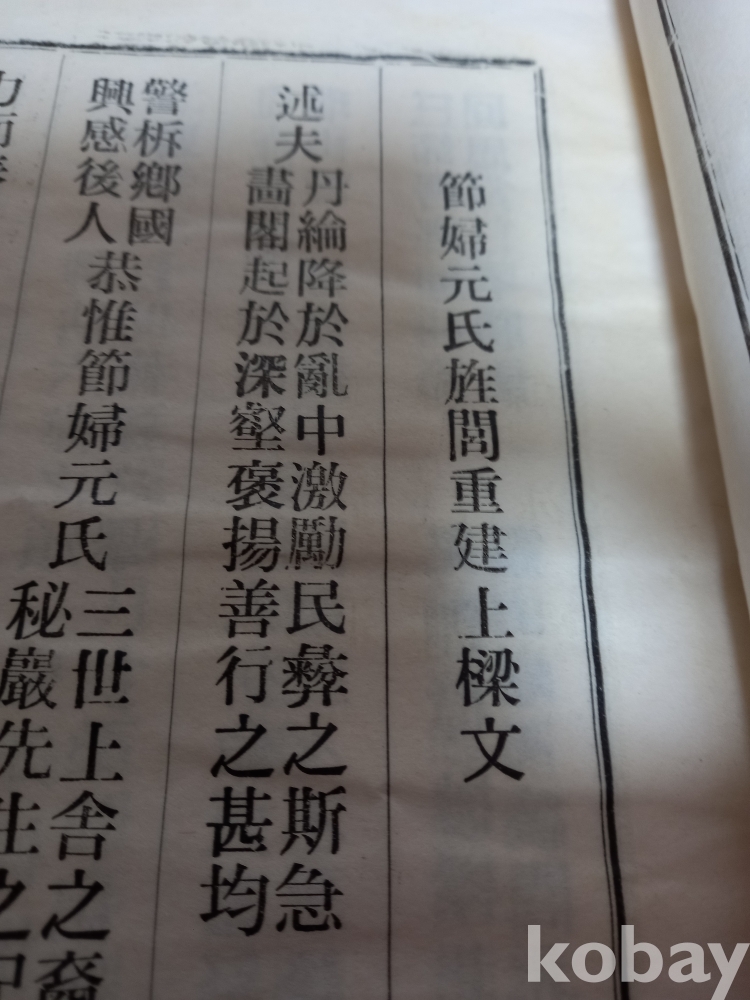 節婦元氏旌閭重建上樑文
述夫
丹綸降於亂中激勵民彝之斯急
畵閣起於深壑褒揚善行之甚均
警柝鄉國
興感後人
恭惟節婦元氏
三世上舍之裔
秘巖先生之
kobay